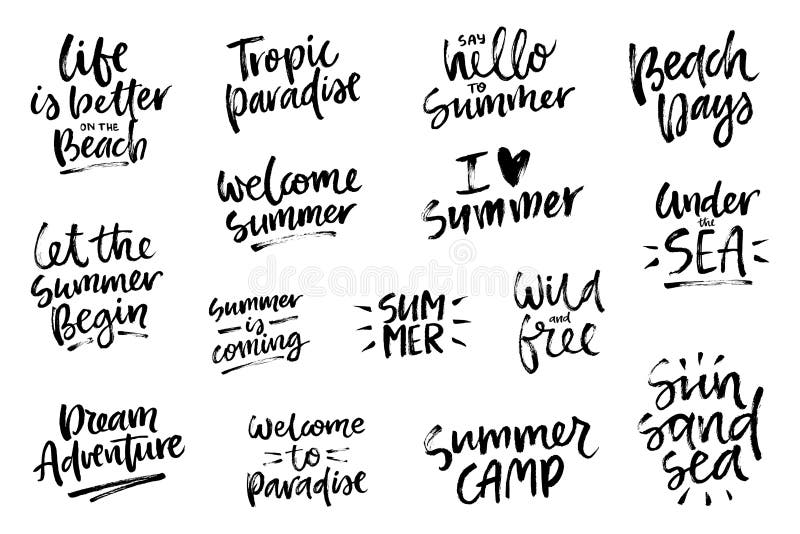 Life
is better
ON THE
Beach
Tropic
Paradise
SAY
hello
TO
Summer
Beach
Days
Welcome
Summer
I ♥
Summer
Under
the
SEA
Let the
Summer
Begin
Summer
is
coming
SUM
MER
Wild
and
free
Sun
Sand
Sea
Dream
Adventure
Welcome
to
Paradise
Summer
CAMP
dreamstime